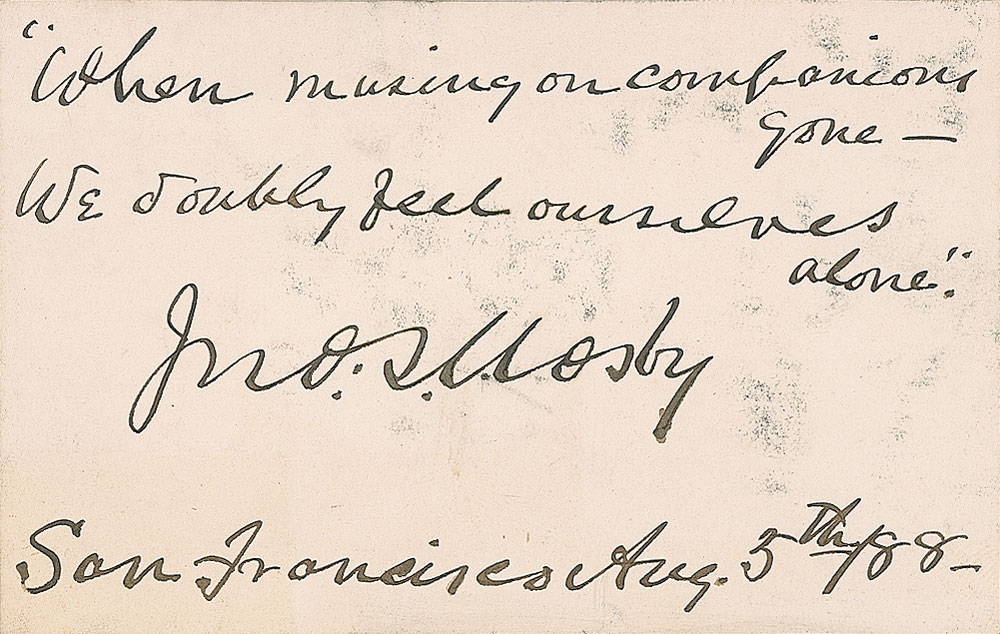 "When musing on companions
gone —
We doubly feel ourselves
alone".
Jno. S. Mosby
San Francisco Aug. 5th/88 -